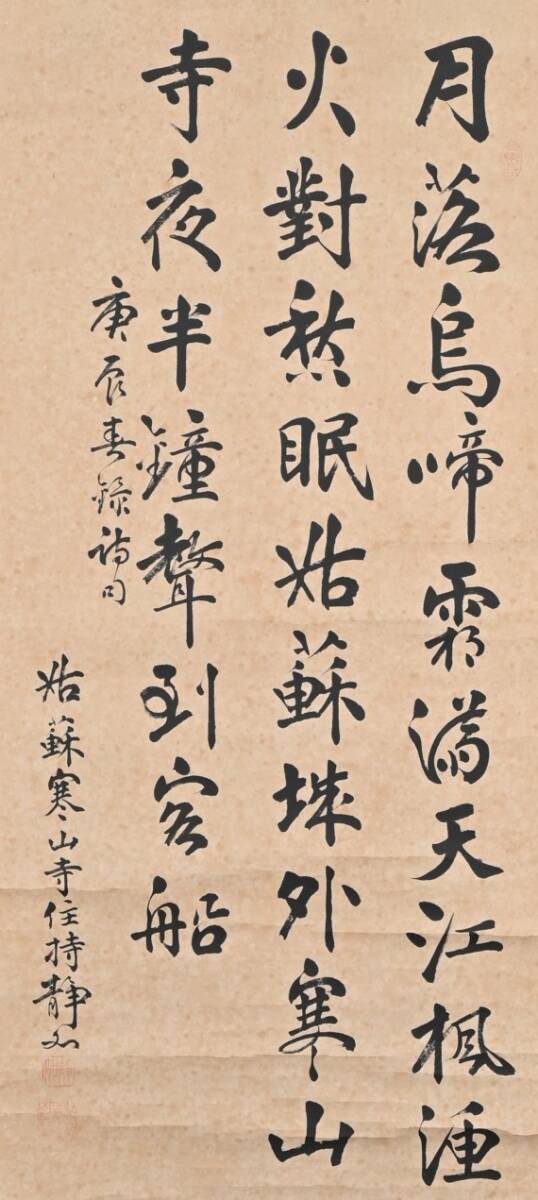 月落烏啼霜滿天江楓漁
火對愁眠姑蘇城外寒山
寺夜半鐘聲到客船
庚辰春錄詩句
姑蘇寒山寺住持靜如